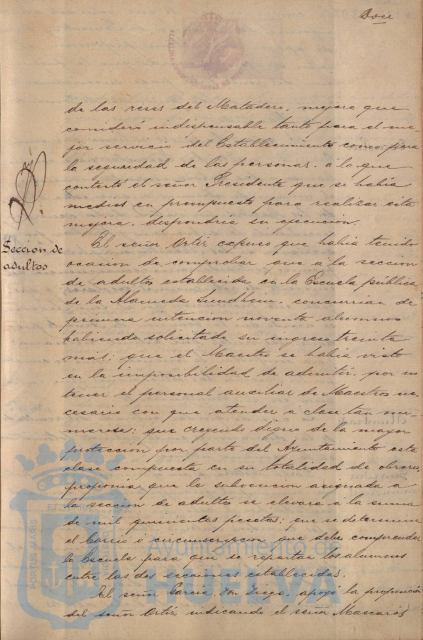 Doce
de las reses del Matadero, mejora que
consideró indispensable tanto para el me-
jor servicio del Establecimiento como para
la seguridad de las personas, a lo que
contestó el señor Presidente que si había
medios en presupuesto para realizar esta
mejora, dispondría su ejecución.
Sección de
adultos
El señor Ortiz expuso que había tenido
ocasión de comprobar que a la sección
de adultos establecida en la Escuela pública
de la Alameda Sundheim, concurrían de
primera intención noventa alumnos
habiendo solicitado su ingreso treinta
mas, que el Maestro se había visto
en la imposibilidad de admitir, por no
tener el personal auxiliar de Maestros ne-
cesario con que atender a clase tan nu-
merosa: que creyendo digno de la mayor
protección por parte del Ayuntamiento esta
clase compuesta en su totalidad de obreros,
proponía que la subvención asignada a
la sección de adultos se elevara a la suma
de mil quinientas pesetas; que se determine
el barrio o circunscripción que debe comprender
la Escuela para que se repartan los alumnos
entre las dos secciones establecidas.
El señor García, Don Diego, apoyó la proposición
del señor Ortiz, indicando el señor Mascarós
Ayuntamiento de